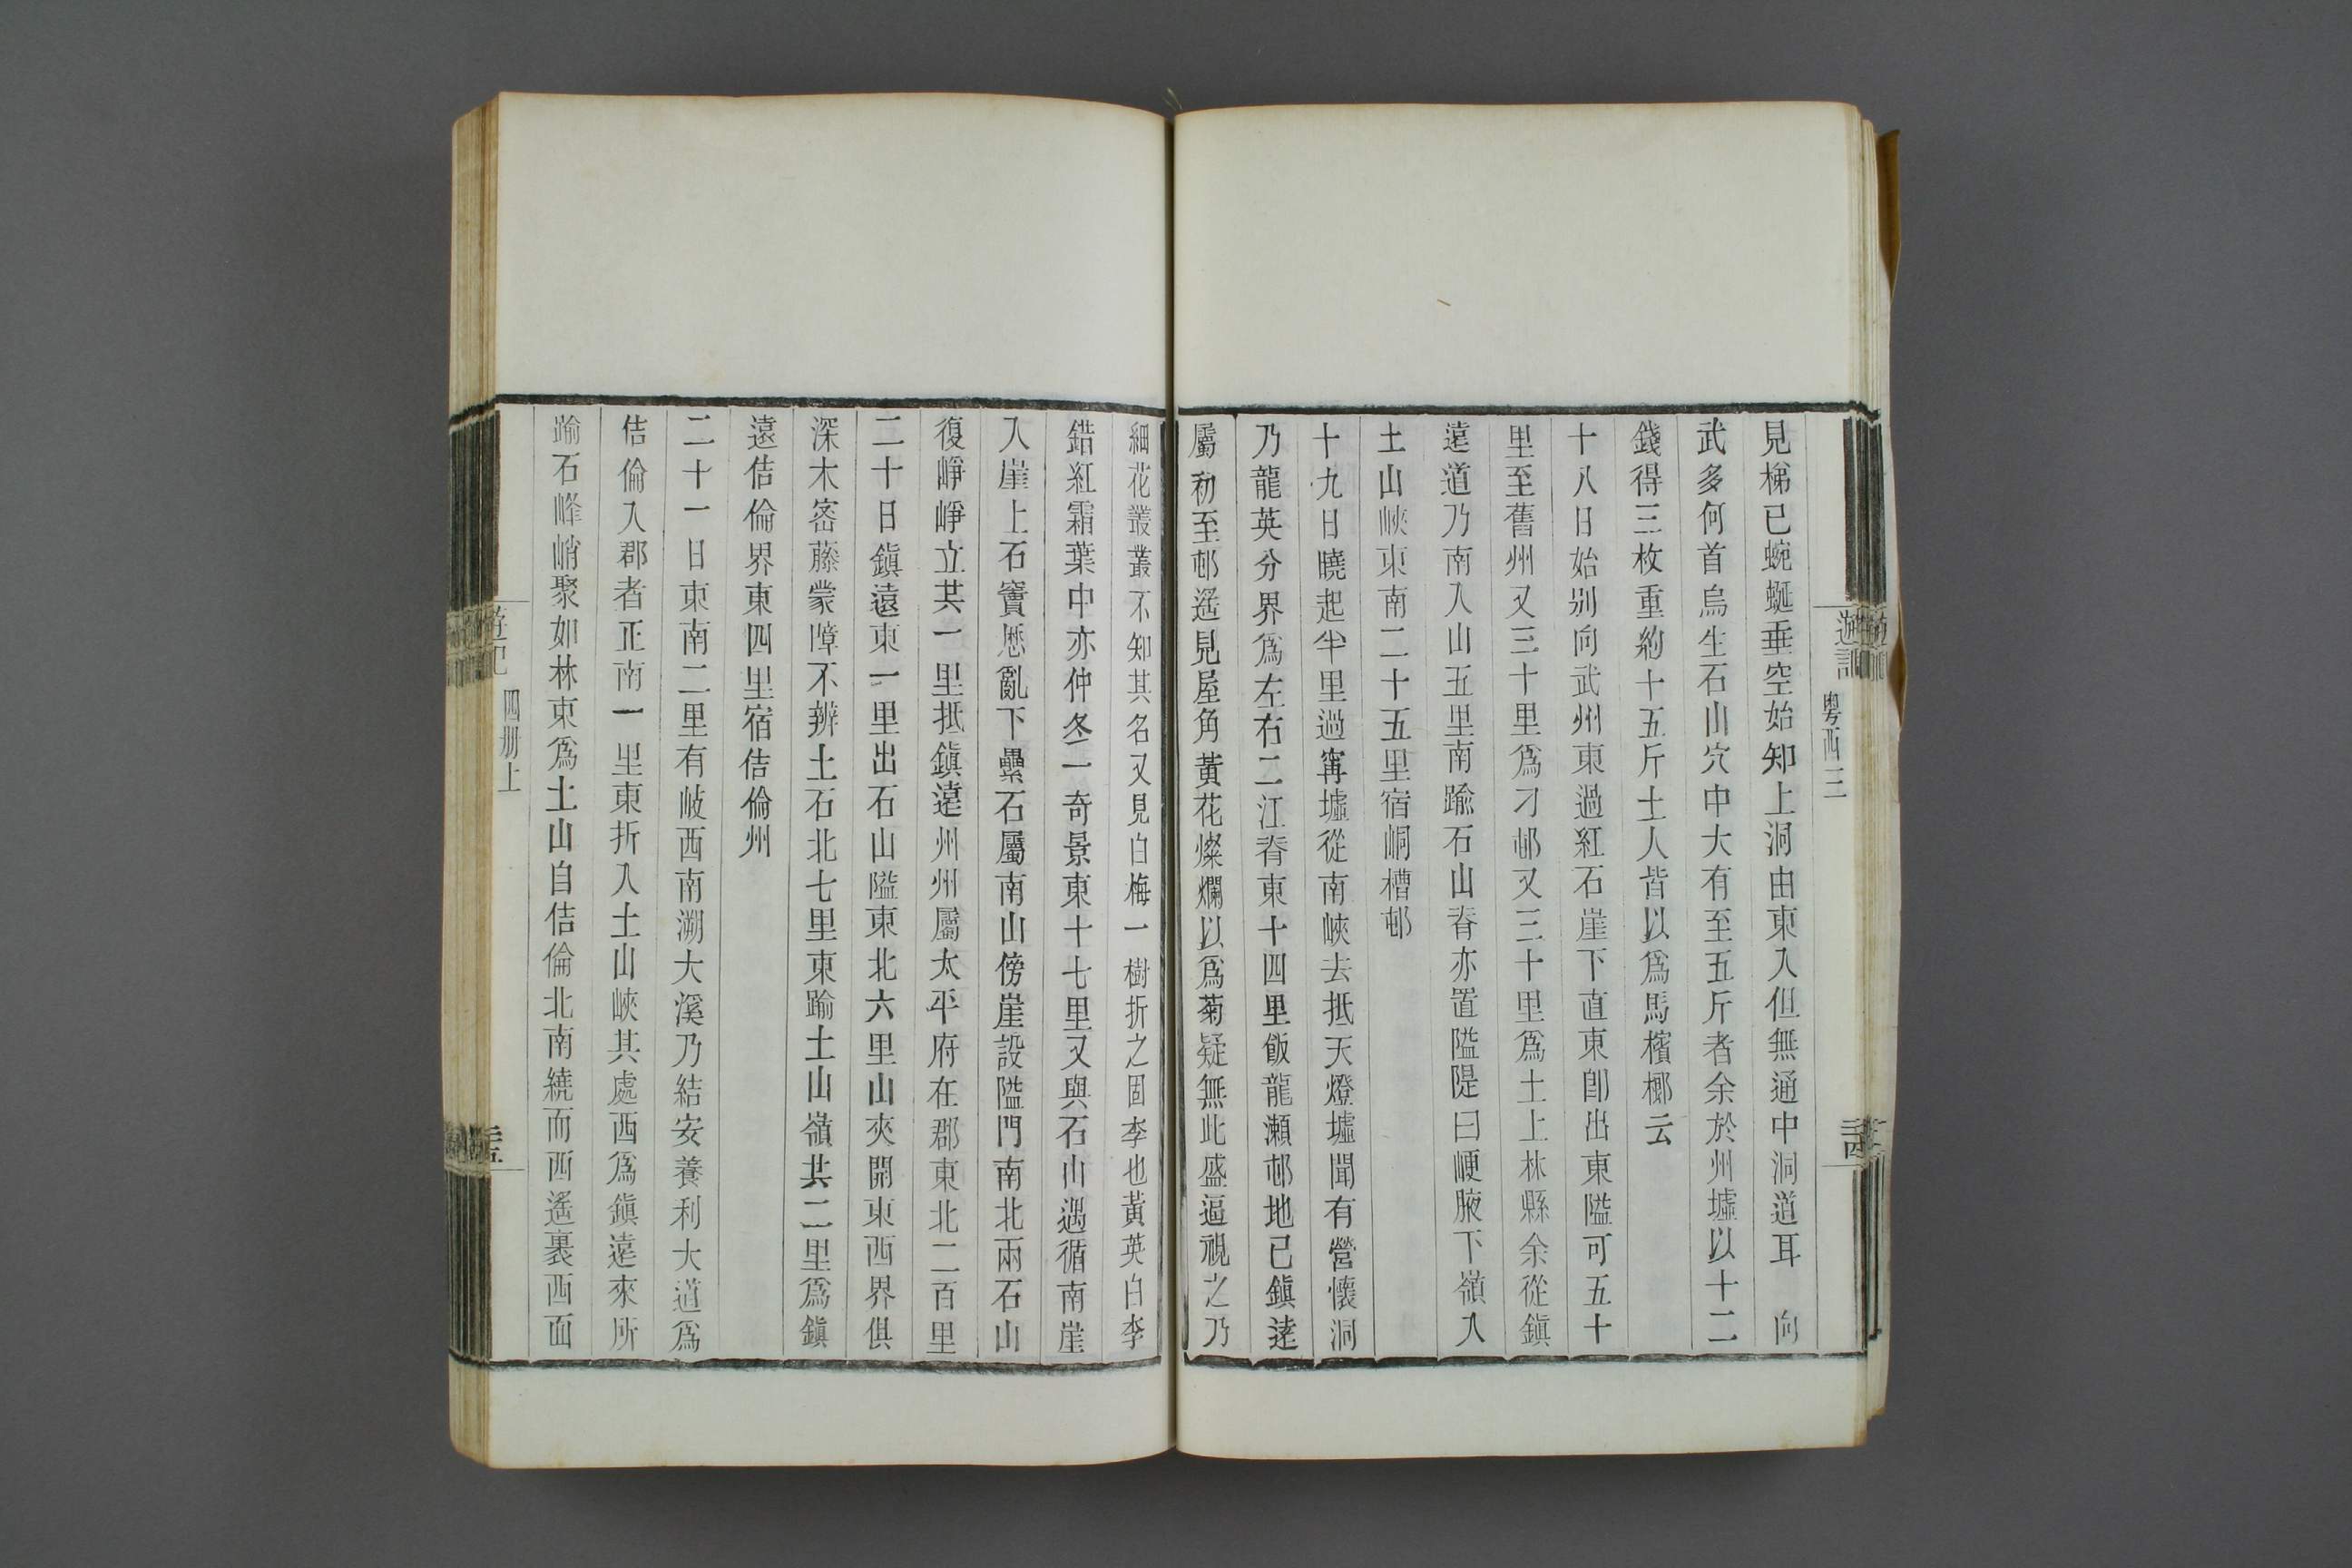 遊記
粵西三
三四
見梯已蜿蜒垂空始知上洞由東入但無通中洞道耳　向
武多何首烏生石山穴中大有至五斤者余於州墟以十二
錢得三枚重約十五斤土人皆以為馬檳榔云
十八日始別向武州東過紅石崖下直東卽出東隘可五十
里至舊州又三十里爲刁邨又三十里爲土上林縣余從鎭
遠道乃南入山五里南踰石山脊亦置隘隄曰峺腋下嶺入
土山峽東南二十五里宿峒槽邨
十九日曉起半里過甯墟從南峽去抵天燈墟聞有營懷洞
乃龍英分界爲左右二江脊東十四里飯龍瀨邨地已鎭遠
屬初至邨遙見屋角黃花燦爛以爲菊疑無此盛逼視之乃
細花叢叢不知其名又見白梅一樹折之固李也黃英白李
錯紅霜葉中亦仲冬一奇景東十七里又與石山遇循南崖
入崖上石竇懸亂下壘石屬南山傍崖設隘門南北兩石山
復崢崢立其一里抵鎭遠州州屬太平府在郡東北二百里
二十日鎭遠東一里出石山隘東北六里山夾開東西界俱
深木密藤蒙障不辨土石北七里東踰土山嶺共二里爲鎭
遠佶倫界東四里宿佶倫州
二十一日東南二里有岐西南溯大溪乃結安養利大道爲
佶倫入郡者正南一里東折入土山峽其處西爲鎭遠來所
踰石峰峭聚如林東爲土山自佶倫北南繞而西遙裹西面
遊記
四册上
三五